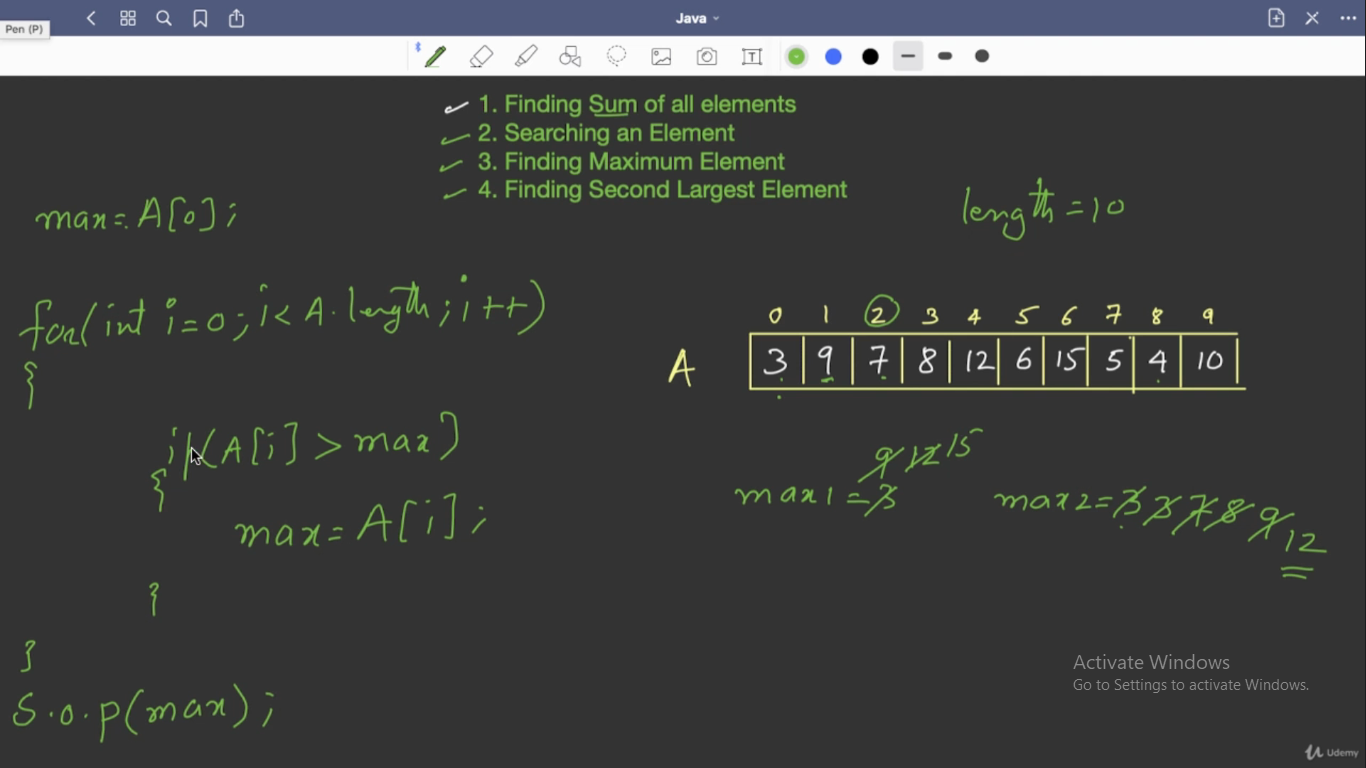 Java
Pen (P)
1. Finding Sum of all elements
2. Searching an Element
3. Finding Maximum Element
4. Finding Second Largest Element
max = A[0];
length = 10
for(int i=0; i< A.length; i++)
{
if(A[i] > max)
{
max = A[i];
}
}
S.o.p(max);
0 1 2 3 4 5 6 7 8 9
A 3 9 7 8 12 6 15 5 4 10
9 12 15
max1 = 3
max2 = 3 3 7 8 9 12
Activate Windows
Go to Settings to activate Windows.
Udemy